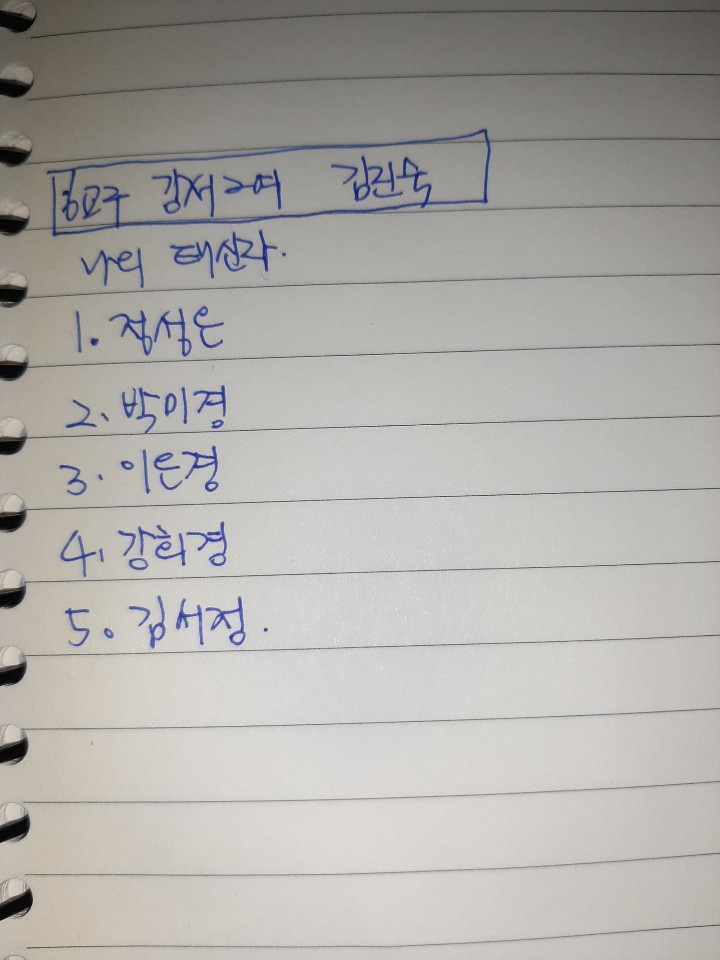 6교구 강서2여 김진숙
나의 태신자.
1. 정성은
2. 박미경
3. 이은경
4. 강희경
5. 김서정.